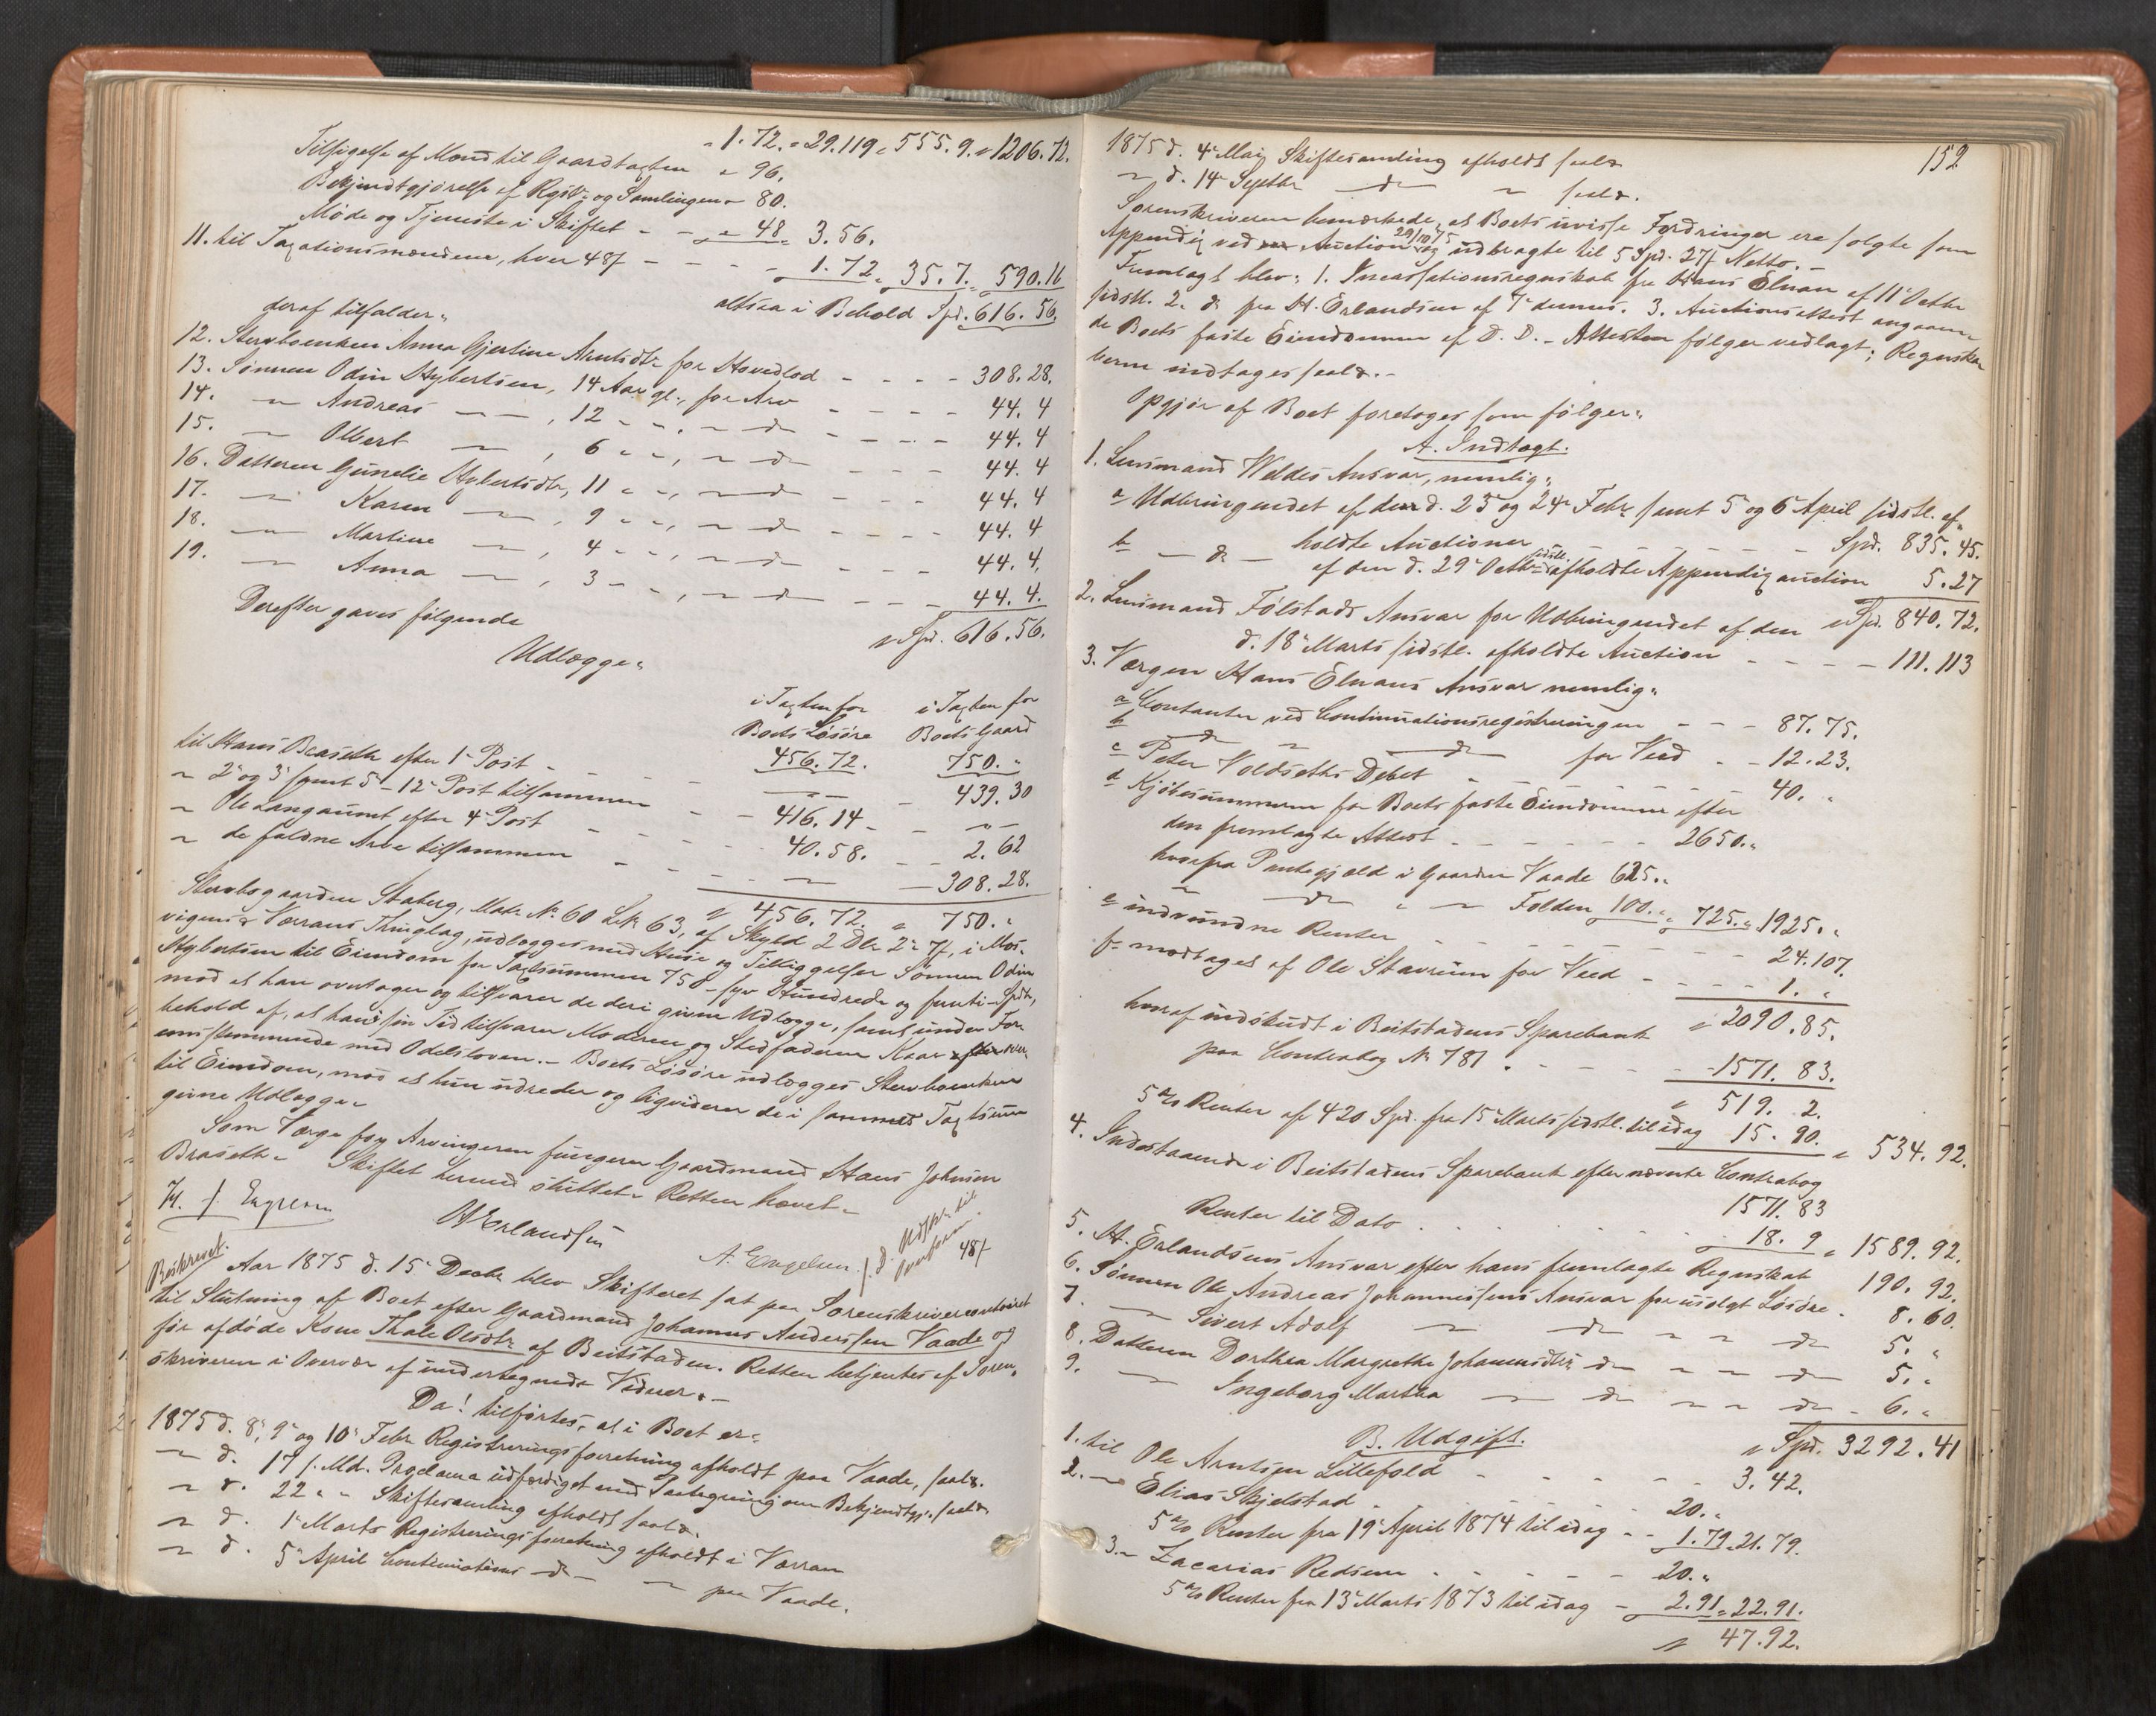 " 1.72. " 29.119 " 555.9. " 1206.72.
Tilsigelse af Mænd til Gaardtaxten " 96.
Bekjendtgjørelse af Regist: og Samlingen " 80.
Møde og Tjeneste i Skiftet - - " 48 " 3.56.
11. til Taxationsmændene, hver 48ß - - - - 1.72. " 35.7. " 590.16
altsaa i Behold Spd. 616.56.
deraf tilfalder:
12. Stervboenken Anna Gjertine Arntsdtr for Hovedlod - - - - 308.28.
13. Sønnen Odin Hybertsen, 14 Aar gl., for Arv - - - - 44.4
14. — Andreas — — , 12 - - , — do - - - - 44.4
15. — Olbert — , 6 - - , — do - - - 44.4
16. Datteren Gunelie Hybertsdtr, 11 - - , — do - - - 44.4
17. — Karen — , 9 - - , — do - - - - 44.4
18. — Martine — , 4 - - , — do - - - 44.4.
19. — Anna — , 3 - - , — do - - - 44.4.
" Spd. 616.56.
Derefter gaves følgende
Udlægge:
i Taxten for i Taxten for
Boets Løsøre Boets Gaard
456.72. 750. "
til Hans Braseth efter 1ste Post - - - - — 439.30
" 2den og 3die samt 5te - 12te Post tilsammen - - 416.14 - - — " —
" Ole Langaunet efter 4de Post - - - - 40.58. - - 2.62
" de faldne Arve tilsammen - - - - — — 308.28.
" 456.72. " 750. "
Stervbogaarden Staberg, Matr. No. 60 Løb. 63, af Skyld 2 Dlr. 2 " 7ß, i Mos-
vigens & Værrans Thinglag, udlægges med Huse og Tilliggelser Sønnen Odin
Hybertsen til Eiendom for Taxtsummen 750 - syv Hundrede og femti - Spdlr,
mod at han overtager og tilsvarer de deri givne Udlægge, samt under For-
behold af, at han i sin Tid tilsvarer Moderen og Stedfaderen Kaar
overensstemmende med Odelsloven. - Boets Løsøre udlægges Stervboenken
til Eiendom, mod at hun udreder og liqviderer de i sammes Taxtsum
givne Udlægge.
Som Værge for Arvingerne fungerer Gaardmand Hans Johnsen
Braseth. Skiftet hermed sluttet. Retten hævet.
H. J. Engesen
O Erlandsen
A. Engelsen
Beskrevet.
48ß
Aar 1875 d. 15de Decbr. blev Skifteret sat paa Sorenskrivercontoiret
til Slutning af Boet efter Gaardmand Johannes Anderssen Vaade og
før afdøde Kone Thale Olsdtr. af Beitstaden. Retten betjentes af Soren-
skriveren i Overvær af undertegnede Vidner. -
Da! tilførtes, at i Boet er:
1875 d. 8de, 9de og 10de Febr. Registreringsforretning afholdt paa Vaade, saal.
— d. 17 s. Md. Proclama udfærdiget med Paategning om Bekjendtgj. saal.
— d. 22 " " Skiftesamling afholdt saal.
— d. 1ste Marts Registreringsforretning afholdt i Værran
— d. 5te April Continuations do — paa Vaade.
152
1875 d. 4de Maj Skiftesamling afholdt saal.
— d. 14de Septbr — do — saal.
Sorenskriveren bemærkede, at Boets uvisse Fordringer ere solgte som
Appendix ved Auction 29/10 75 og udbragte til 5 Spd. 27ß Netto. -
Fremlagt blev: 1. Incassationsregnskab fra Hans Elnan af 11te Octbr
sidstl. 2. do fra H. Erlandsen af 7de dennes. 3. Auctionsattest angaaen-
de Boets faste Eiendomme af D. D. - Attesten følger vedlagt; Regnska-
berne indtages saal. -
Opgjør af Boet foretoges som følger:
A. Indtægt.
1. Lensmand Veldes Ansvar, nemlig:
a Udbringendet af de d. 23 og 24de Febr. samt 5te og 6te April sidstl. af-
holdte Auctioner - - - - - - Spd. 835.45.
b — do — af den d. 29de Octbr. sidstl. afholdte Appendixauction 5.27
" Spd. 840.72.
2. Lensmand Følstads Ansvar for Udbringendet af den
d. 18de Marts sidstl. afholdte Auction - - - - - 111.113
3. Værgen Hans Elnans Ansvar nemlig:
a Contanter ved Continuationsregistreringen - - - 87.75.
b do — do for Veed - - 12.23.
c Peter Voldseths Debet - - - - - - 40. "
d Kjøbesummen for Boets faste Eiendomme efter
den fremlagte Attest - - - - - - 2650. "
hvorfra Pantegjæld i Gaarden Vaade 625. "
" do " — Folden 100. " " 725. " 1925. "
e indvundne Renter - - - - - - - - 24.107.
f modtaget af Ole Stavrum for Veed - - - - - 1. "
" 2090.85.
hvoraf indskudt i Beitstadens Sparebank
paa Contrabog No. 781 . - - - - - 1571.83.
" 519.2.
5% Renter af 420 Spd. fra 15de Marts sidstl. til idag 15.90. " 534.92.
4. Indestaaende i Beitstadens Sparebank efter nævnte Contrabog
1571.83
Renter til Dato . . . . . . . . 18.9 " 1589.92.
5. H. Erlandsens Ansvar efter hans fremlagte Regnskab 190.92.
6. Sønnen Ole Andreas Johannessens Ansvar for usolgt Løsøre . 8.60.
7. — Sivert Adolf — do — — do 5. "
8. Datteren Dorthea Margrethe Johannesdtr do — — do 5. "
9. — Ingeborg Martha — do — — do - 6. "
" Spd. 3292.41
B. Udgift.
1. til Ole Arntsen Lillefold - - - - - 3.42.
2. — Elias Skjelstad . - - - - 20. "
5% Renter fra 19de April 1874 til idag - - 1.79 " 21.79.
3. — Zacarias Redsem . - - - - 20. "
5% Renter fra 13de Marts 1873 til idag - 2.91 " 22.91.
" 47.92.